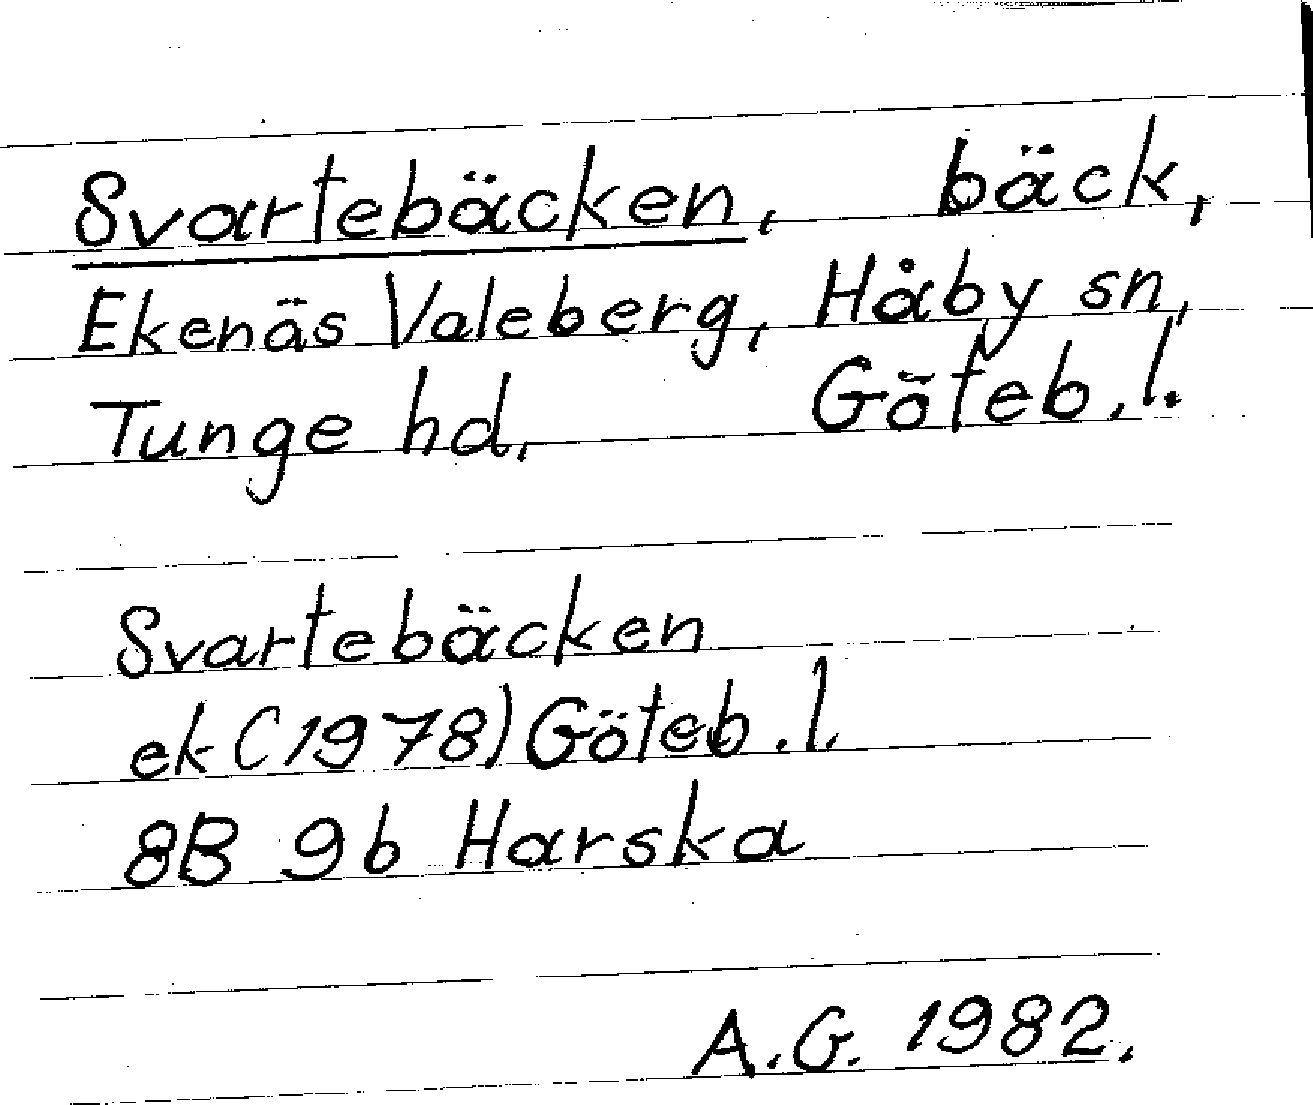 Svartebäcken, bäck,
Ekenäs Valeberg, Håby sn,
Tunge hd, Göteb. l.
Svartebäcken
ek (1978) Göteb. l.
8B 9b Harska
A.G. 1982.